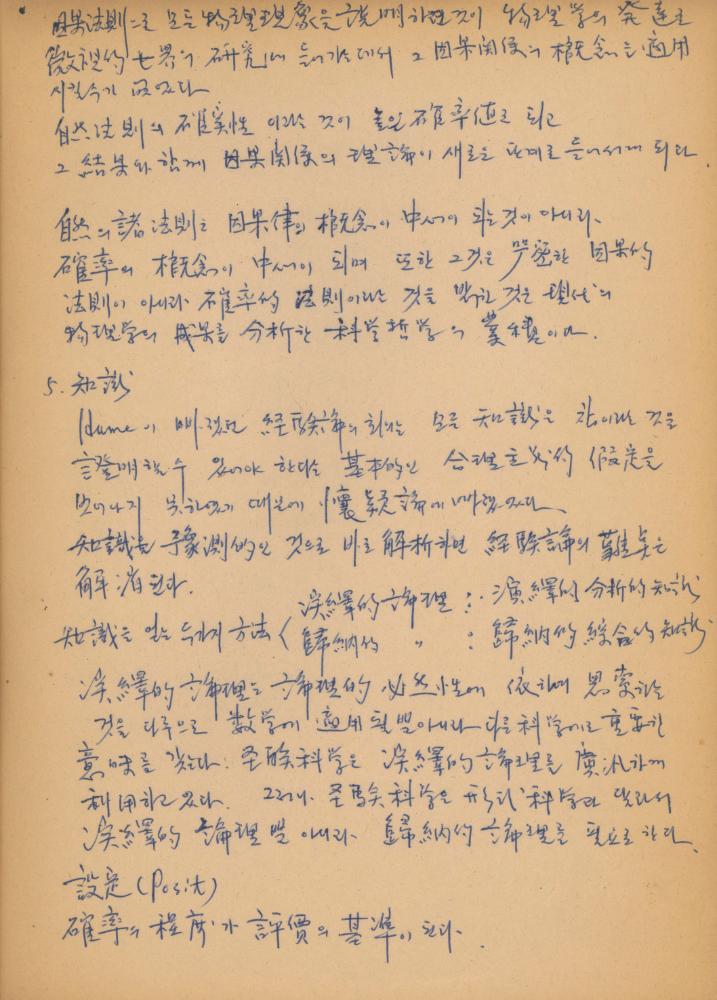 因果法則으로 모든 物理現象을 說明하던 것이 物理學의 發達로
微視的 世界의 研究에 들어가는데서 그 因果關係의 槪念을 適用
시킬수가 없었다
自然法則의 確實性 이라는 것이 높은 確率値로 되고
그 結果와 함께 因果關係의 理論이 새로운 단계로 들어서게 되다
自然의 諸法則은 因果律의 槪念이 中心이 되는 것이 아니라
確率의 槪念이 中心이 되며 또한 그것은 嚴密한 因果的
法則이 아니라 確率的 法則이라는 것을 밝힌 것은 現代의
物理學의 成果를 分析한 科學哲學의 業積이다.
5. 知識
Hume이 빠졌던 經驗論의 회의는 모든 知識은 참이라는 것을
證明할 수 있어야 한다는 基本的인 合理主義的 假定을
벗어나지 못하였기 때문에 懷疑論에 빠졌었다
知識을 予測的인 것으로 바로 解析하면 經驗論의 難点은
解消된다.
知識을 얻는 두가지 方法 〈 演繹的 論理 : 演繹的 分析的 知識
歸納的 〃 : 歸納的 綜合的 知識
演繹的 論理는 論理的 必然性에 依하여 思索하는
것을 다루므로 數學에 適用될 뿐 아니라 다른 科學에도 重要한
意味를 갖는다. 경驗科學은 演繹的 論理를 廣汎하게
利用하고 있다. 그러나 경驗科學은 形式科學과 달라서
演繹的 論理뿐 아니라 歸納的 論理를 필요로 한다.
設定 (Posit)
確率의 程度가 評價의 基準이 된다.